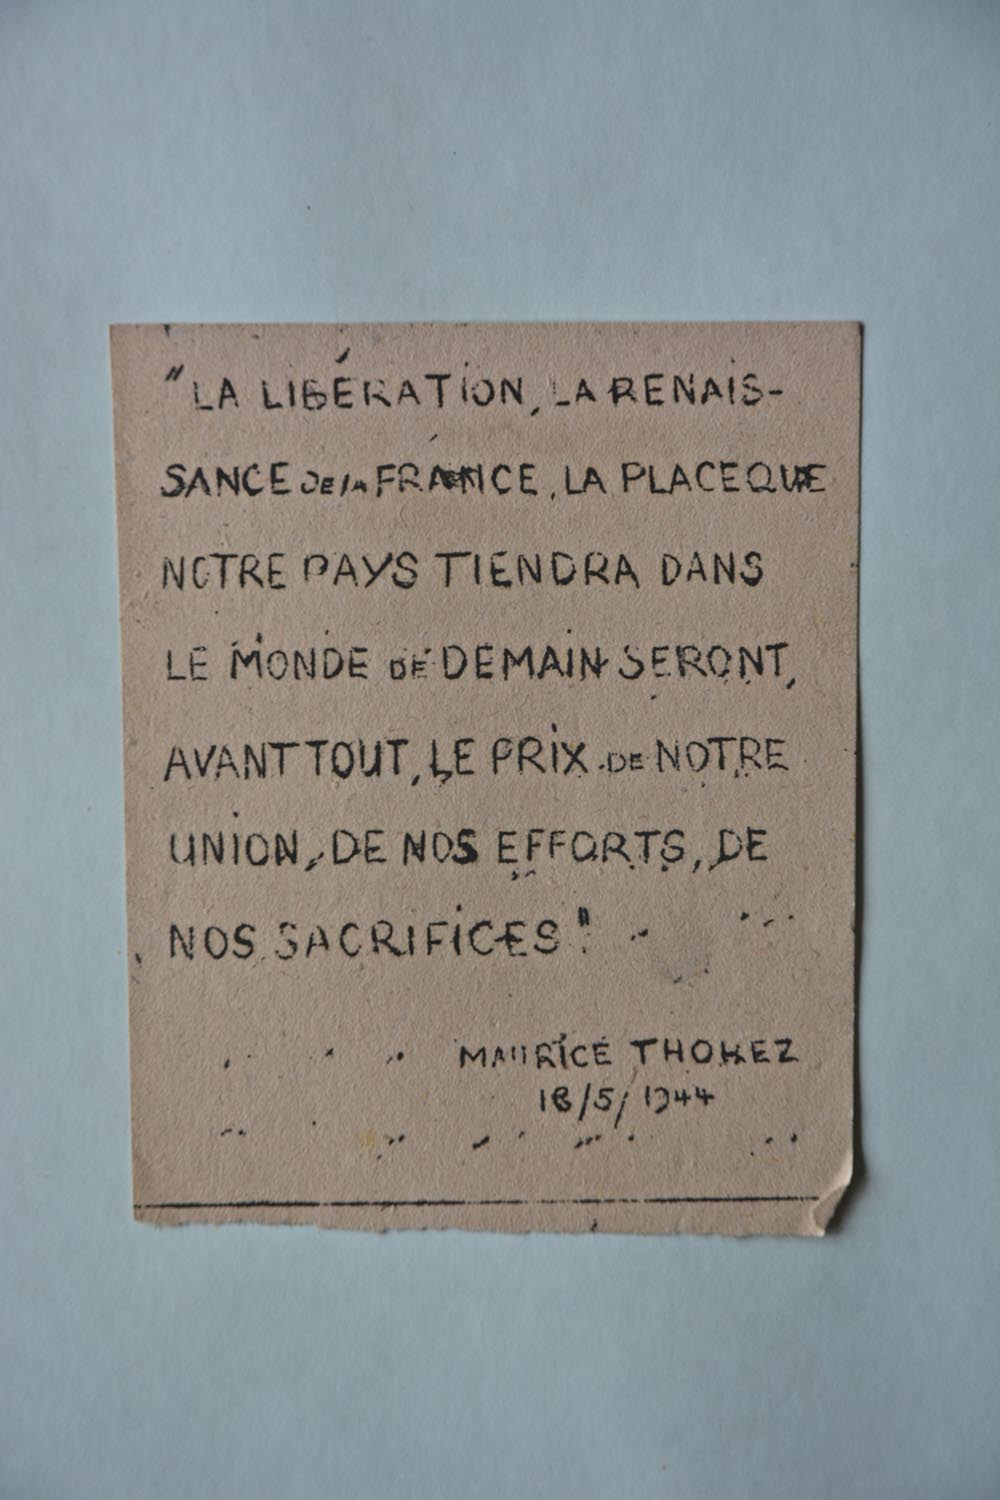 "LA LIBÉRATION, LA RENAIS-
SANCE DE LA FRANCE, LA PLACE QUE
NOTRE PAYS TIENDRA DANS
LE MONDE DE DEMAIN SERONT,
AVANT TOUT, LE PRIX DE NOTRE
UNION, DE NOS EFFORTS, DE
NOS SACRIFICES"
MAURICE THOREZ
18/5/1944